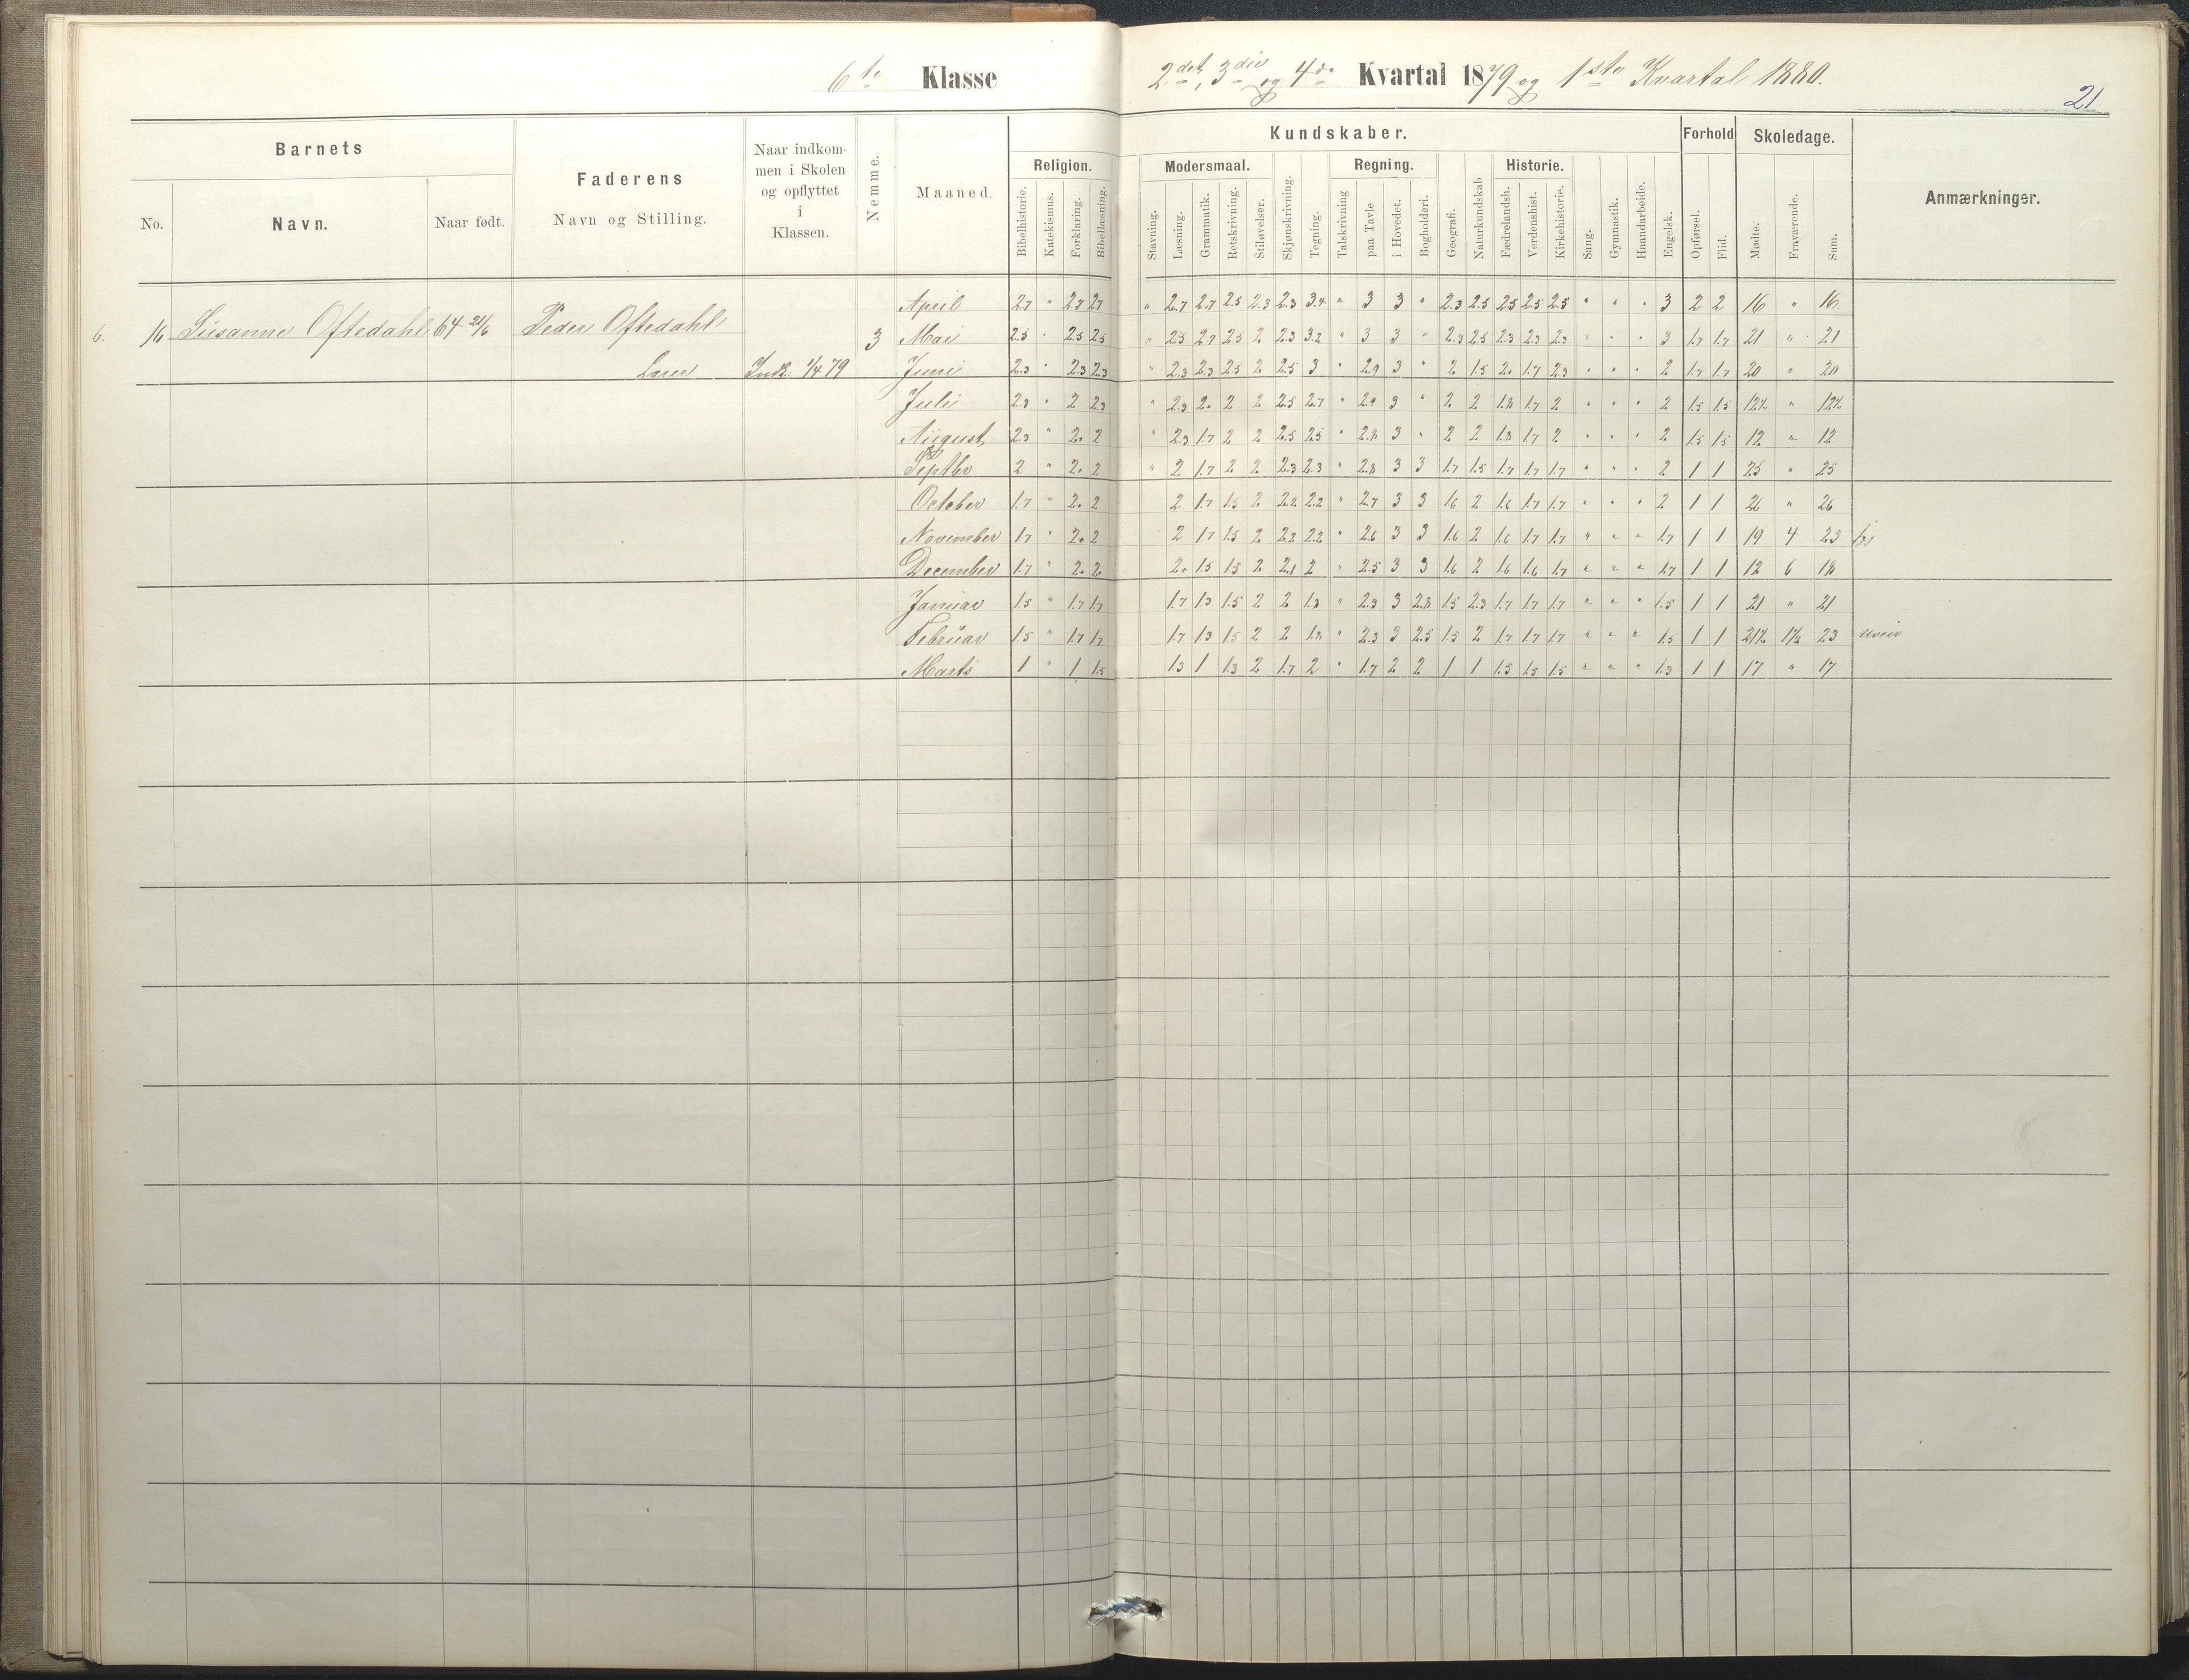 6te Klasse
2det, 3die og 4de Kvartal 1879 og 1ste Kvartal 1880.
21
Barnets
No.
Navn.
Naar født.
Faderens
Navn og Stilling.
Naar indkom-
men i Skolen
og opflyttet
i
Klassen.
Nemme.
Maaned.
Kundskaber.
Religion.
Bibelhistorie.
Katekismus.
Forklaring.
Bibellæsning.
Modersmaal.
Stavning.
Læsning.
Grammatik.
Retskrivning.
Stiløvelser.
Skjønskrivning.
Tegning.
Regning.
Talskrivning
paa Tavle
i Hovedet.
Bogholderi.
Geografi.
Naturkundskab
Historie.
Fædrelandsh.
Verdenshist.
Kirkehistorie.
Sang.
Gymnastik.
Haandarbeide.
Engelsk.
Forhold
Opførsel.
Flid.
Skoledage.
Mødte.
Fraværende.
Sum.
Anmærkninger.
6. 16 Susanne Oftedahl 64 21/6 Peder Oftedahl
Indk. 1/4 79
3
April 2.7 " 2.7 2.7 " 2.7 2.7 2.5 2.3 2.3 3.4 " 3 3 " 2.3 2.5 2.5 2.5 2.5 " " " 3 2 2 16 " 16
Mai 2.5 " 2.5 2.5 " 2.5 2.7 2.5 2 2.3 3.2 " 3 3 " 2.3 2.5 2.3 2.3 2.3 " " " 3 1.7 1.7 21 " 21
Juni 2.3 " 2.3 2.3 " 2.3 2.3 2.5 2 2.5 3 " 2.9 3 " 2 1.5 2. 1.7 2.3 " " " 2 1.7 1.7 20 " 20
Juli 2.3 " 2 2.3 " 2.3 2. 2 2 2.5 2.7 " 2.9 3 " 2 2 1.8 1.7 2 " " " 2 1.5 1.5 12½ " 12½
August 2.3 " 2. 2 " 2.3 1.7 2 2 2.5 2.5 " 2.8 3 " 2 2 1.8 1.7 2 " " " 2 1.5 1.5 12 " 12
Septbr 2 " 2. 2 " 2 1.7 2 2 2.3 2.3 " 2.8 3 3 1.7 1.5 1.7 1.7 1.7 " " " 2 1 1 25 " 25
October 1.7 " 2. 2 2 1.7 1.5 2 2.2 2.2 " 2.7 3 3 1.6 2 1.6 1.7 1.7 " " " 2 1 1 26 " 26
November 1.7 " 2. 2 2 1.7 1.5 2 2.2 2.2 " 2.6 3 3 1.6 2 1.6 1.7 1.7 " " " 1.7 1 1 19 4 23
December 1.7 " 2. 2. 2. 1.5 1.5 2 2.1 2 " 2.5 3 3 1.6 2 1.6 1.6 1.7 " " " 1.7 1 1 12 6 18
Januar 1.5 " 1.7 1.7 1.7 1.3 1.5 2 2 1.8 " 2.3 3 2.8 1.5 2.3 1.7 1.7 1.7 " " " 1.5 1 1 21 " 21
Februar 1.5 " 1.7 1.7 1.7 1.3 1.5 2 2 1.8 " 2.3 3 2.5 1.5 2 1.7 1.7 1.7 " " " 1.5 1 1 21½ 1½ 23 uveir
Marts 1 " 1 1.5 1.3 1 1.3 2 1.7 2 " 1.7 2 2 1 1 1.5 1.5 1.5 " " " 1.3 1 1 17 " 17